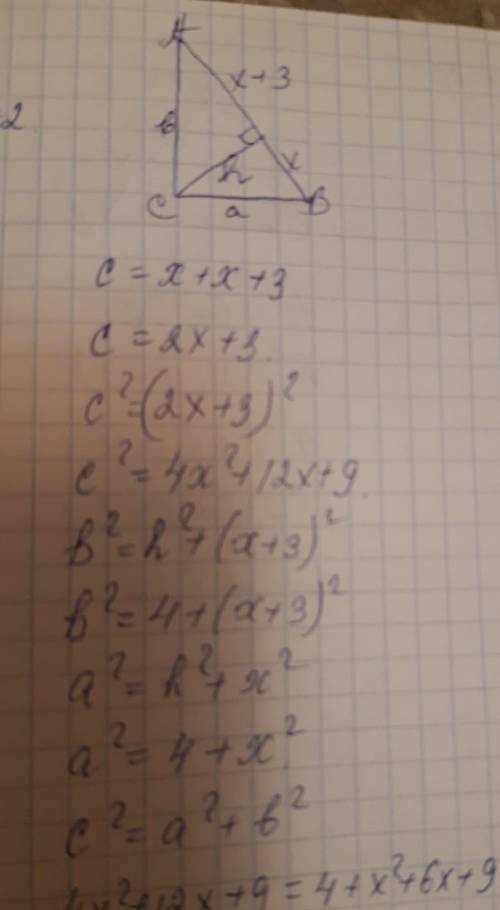 A
x+3
2
в
h
x
C
a
B
c = x+x+3
c = 2x+3.
c²=(2x+3)²
c²=4x²+12x+9.
в²=h²+(x+3)²
в²=4+(x+3)²
a²=h²+x²
a²=4+x²
c²=a²+в²
4x²+12x+9=4+x²+6x+9